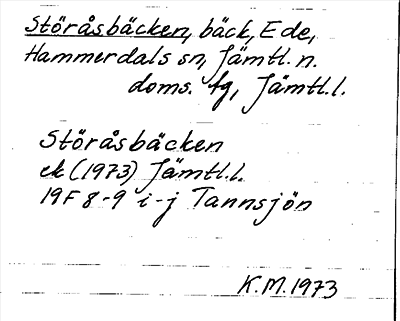 Störåsbäcken, bäck, Ede,
Hammerdals sn, Jämtl. n.
doms. fg, Jämtl.l.
Störåsbäcken
ek (1973) Jämtl.l.
19F 8-9 i-j Tannsjön
K.M. 1973